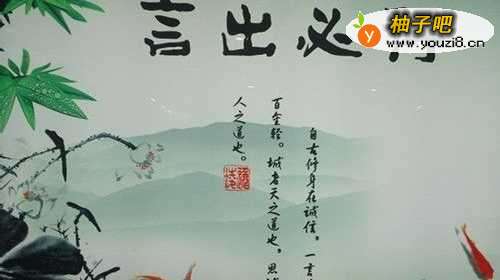 言出必
自古修身在诚信。一言
百金轻。城者天之道也，思
人之道也。
柚子吧
www.youzi8.com